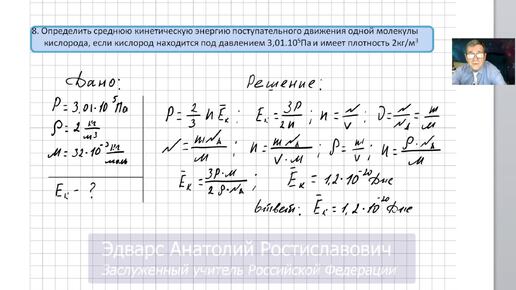 8. Определить среднюю кинетическую энергию поступательного движения одной молекулы
кислорода, если кислород находится под давлением 3,01.10⁵Па и имеет плотность 2кг/м³
Дано:
P = 3,01·10⁵ Па
ρ = 2 кг/м³
M = 32·10⁻³ кг/моль
Eк - ?
Решение:
P = 2/3 n Ēк ; Eк = 3P/2n ; n = N/V ; ν = N/Nₐ = m/M
N = m Nₐ/M ; n = m Nₐ/V·M ; ρ = m/V ; n = ρ·Nₐ/M
Ēк = 3P·M/2ρ·Nₐ ; Ēк = 1,2·10⁻²⁰ Дж
Ответ: Ēк = 1,2·10⁻²⁰ Дж
Эдварс Анатолий Ростиславович
Заслуженный учитель Российской Федерации